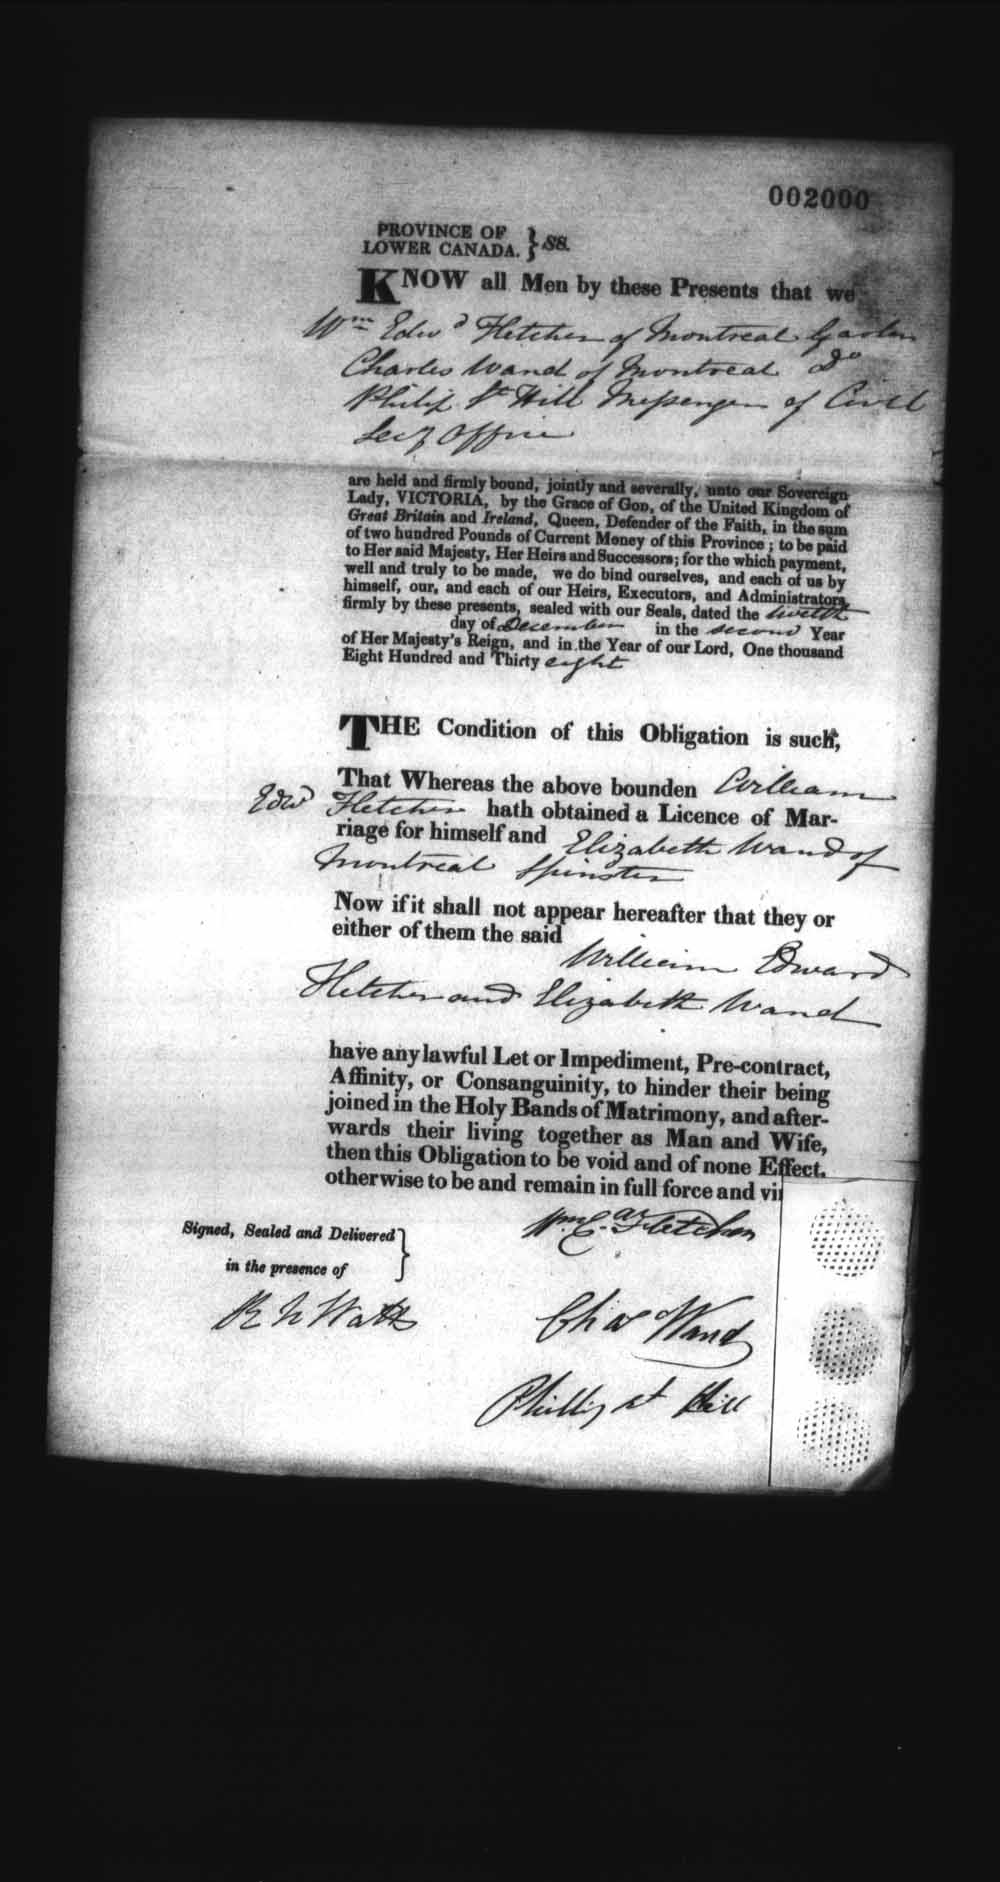 002000
PROVINCE OF
LOWER CANADA. } SS.
KNOW all Men by these Presents that we
Wm Edwd Fletcher of Montreal
Charles Wand of Montreal Do
Philip St Hill Messenger of Civil
Secy Office
are held and firmly bound, jointly and severally, unto our Sovereign
Lady, VICTORIA, by the Grace of GOD, of the United Kingdom of
Great Britain and Ireland, Queen, Defender of the Faith, in the sum
of two hundred Pounds of Current Money of this Province; to be paid
to Her said Majesty, Her Heirs and Successors; for the which payment,
well and truly to be made, we do bind ourselves, and each of us by
himself, our, and each of our Heirs, Executors, and Administrators,
firmly by these presents, sealed with our Seals, dated the twelfth
day of December in the second Year
of Her Majesty's Reign, and in the Year of our Lord, One thousand
Eight Hundred and Thirty eight
THE Condition of this Obligation is such,
That Whereas the above bounden William
Edwd Fletcher hath obtained a Licence of Mar-
riage for himself and Elizabeth Wand of
Montreal Spinster
Now if it shall not appear hereafter that they or
either of them the said
William Edward
Fletcher and Elizabeth Wand
have any lawful Let or Impediment, Pre-contract,
Affinity, or Consanguinity, to hinder their being
joined in the Holy Bands of Matrimony, and after-
wards their living together as Man and Wife,
then this Obligation to be void and of none Effect.
otherwise to be and remain in full force and vi
Signed, Sealed and Delivered
in the presence of
Wm E. Fletcher
R N Watts
Chas Wand
Phillip St Hill